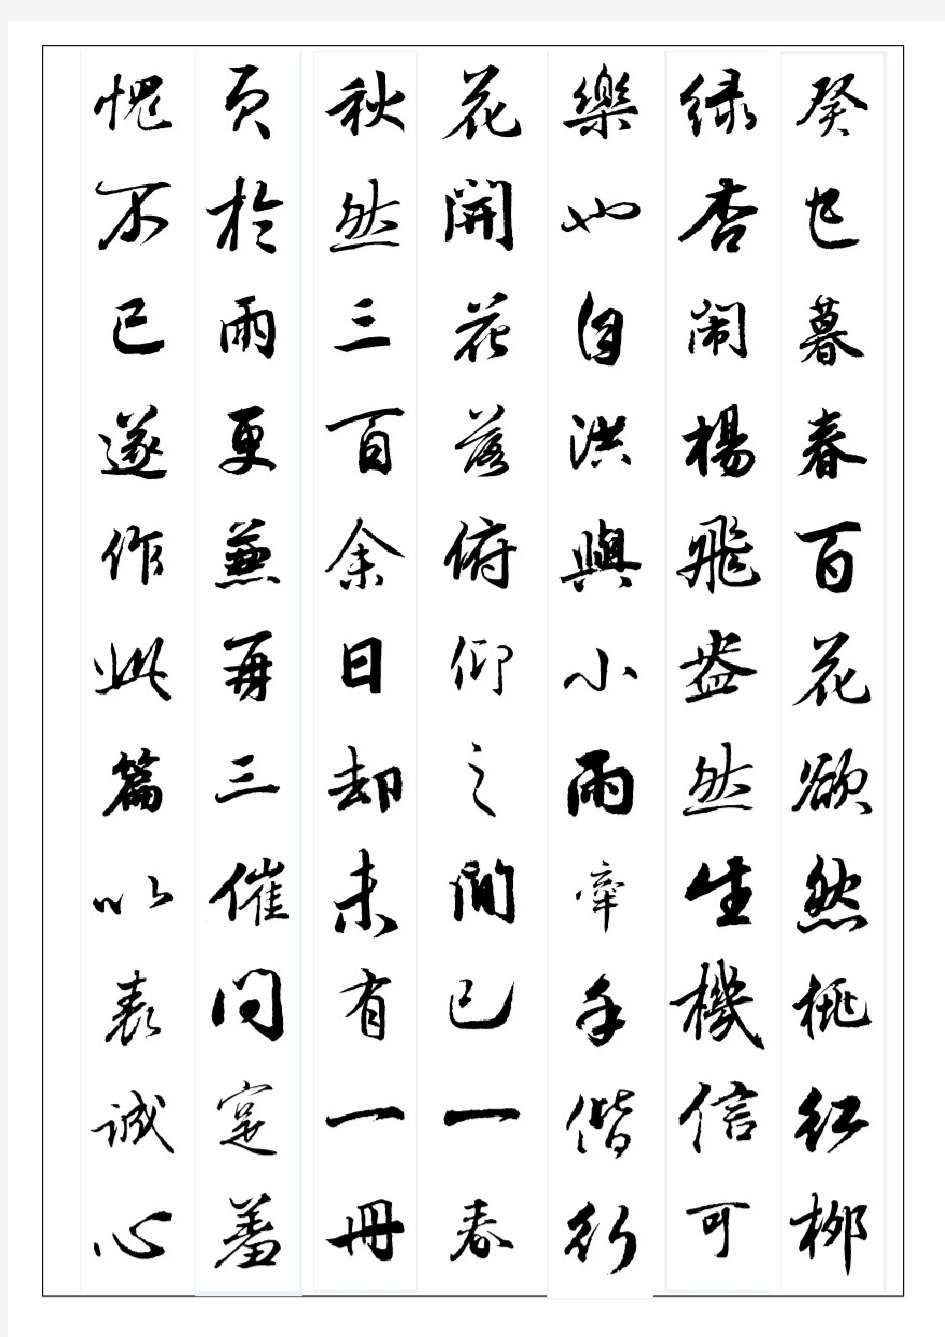 癸巳暮春百花欲然桃红柳
绿杏闹楊飛盎然生機信可
樂也自洪與小雨牵手偕行
花開花落俯仰之间已一春
秋然三百余日却未有一冊
页於雨更兼再三催问寔羞
愧不已遂作此篇以表诚心